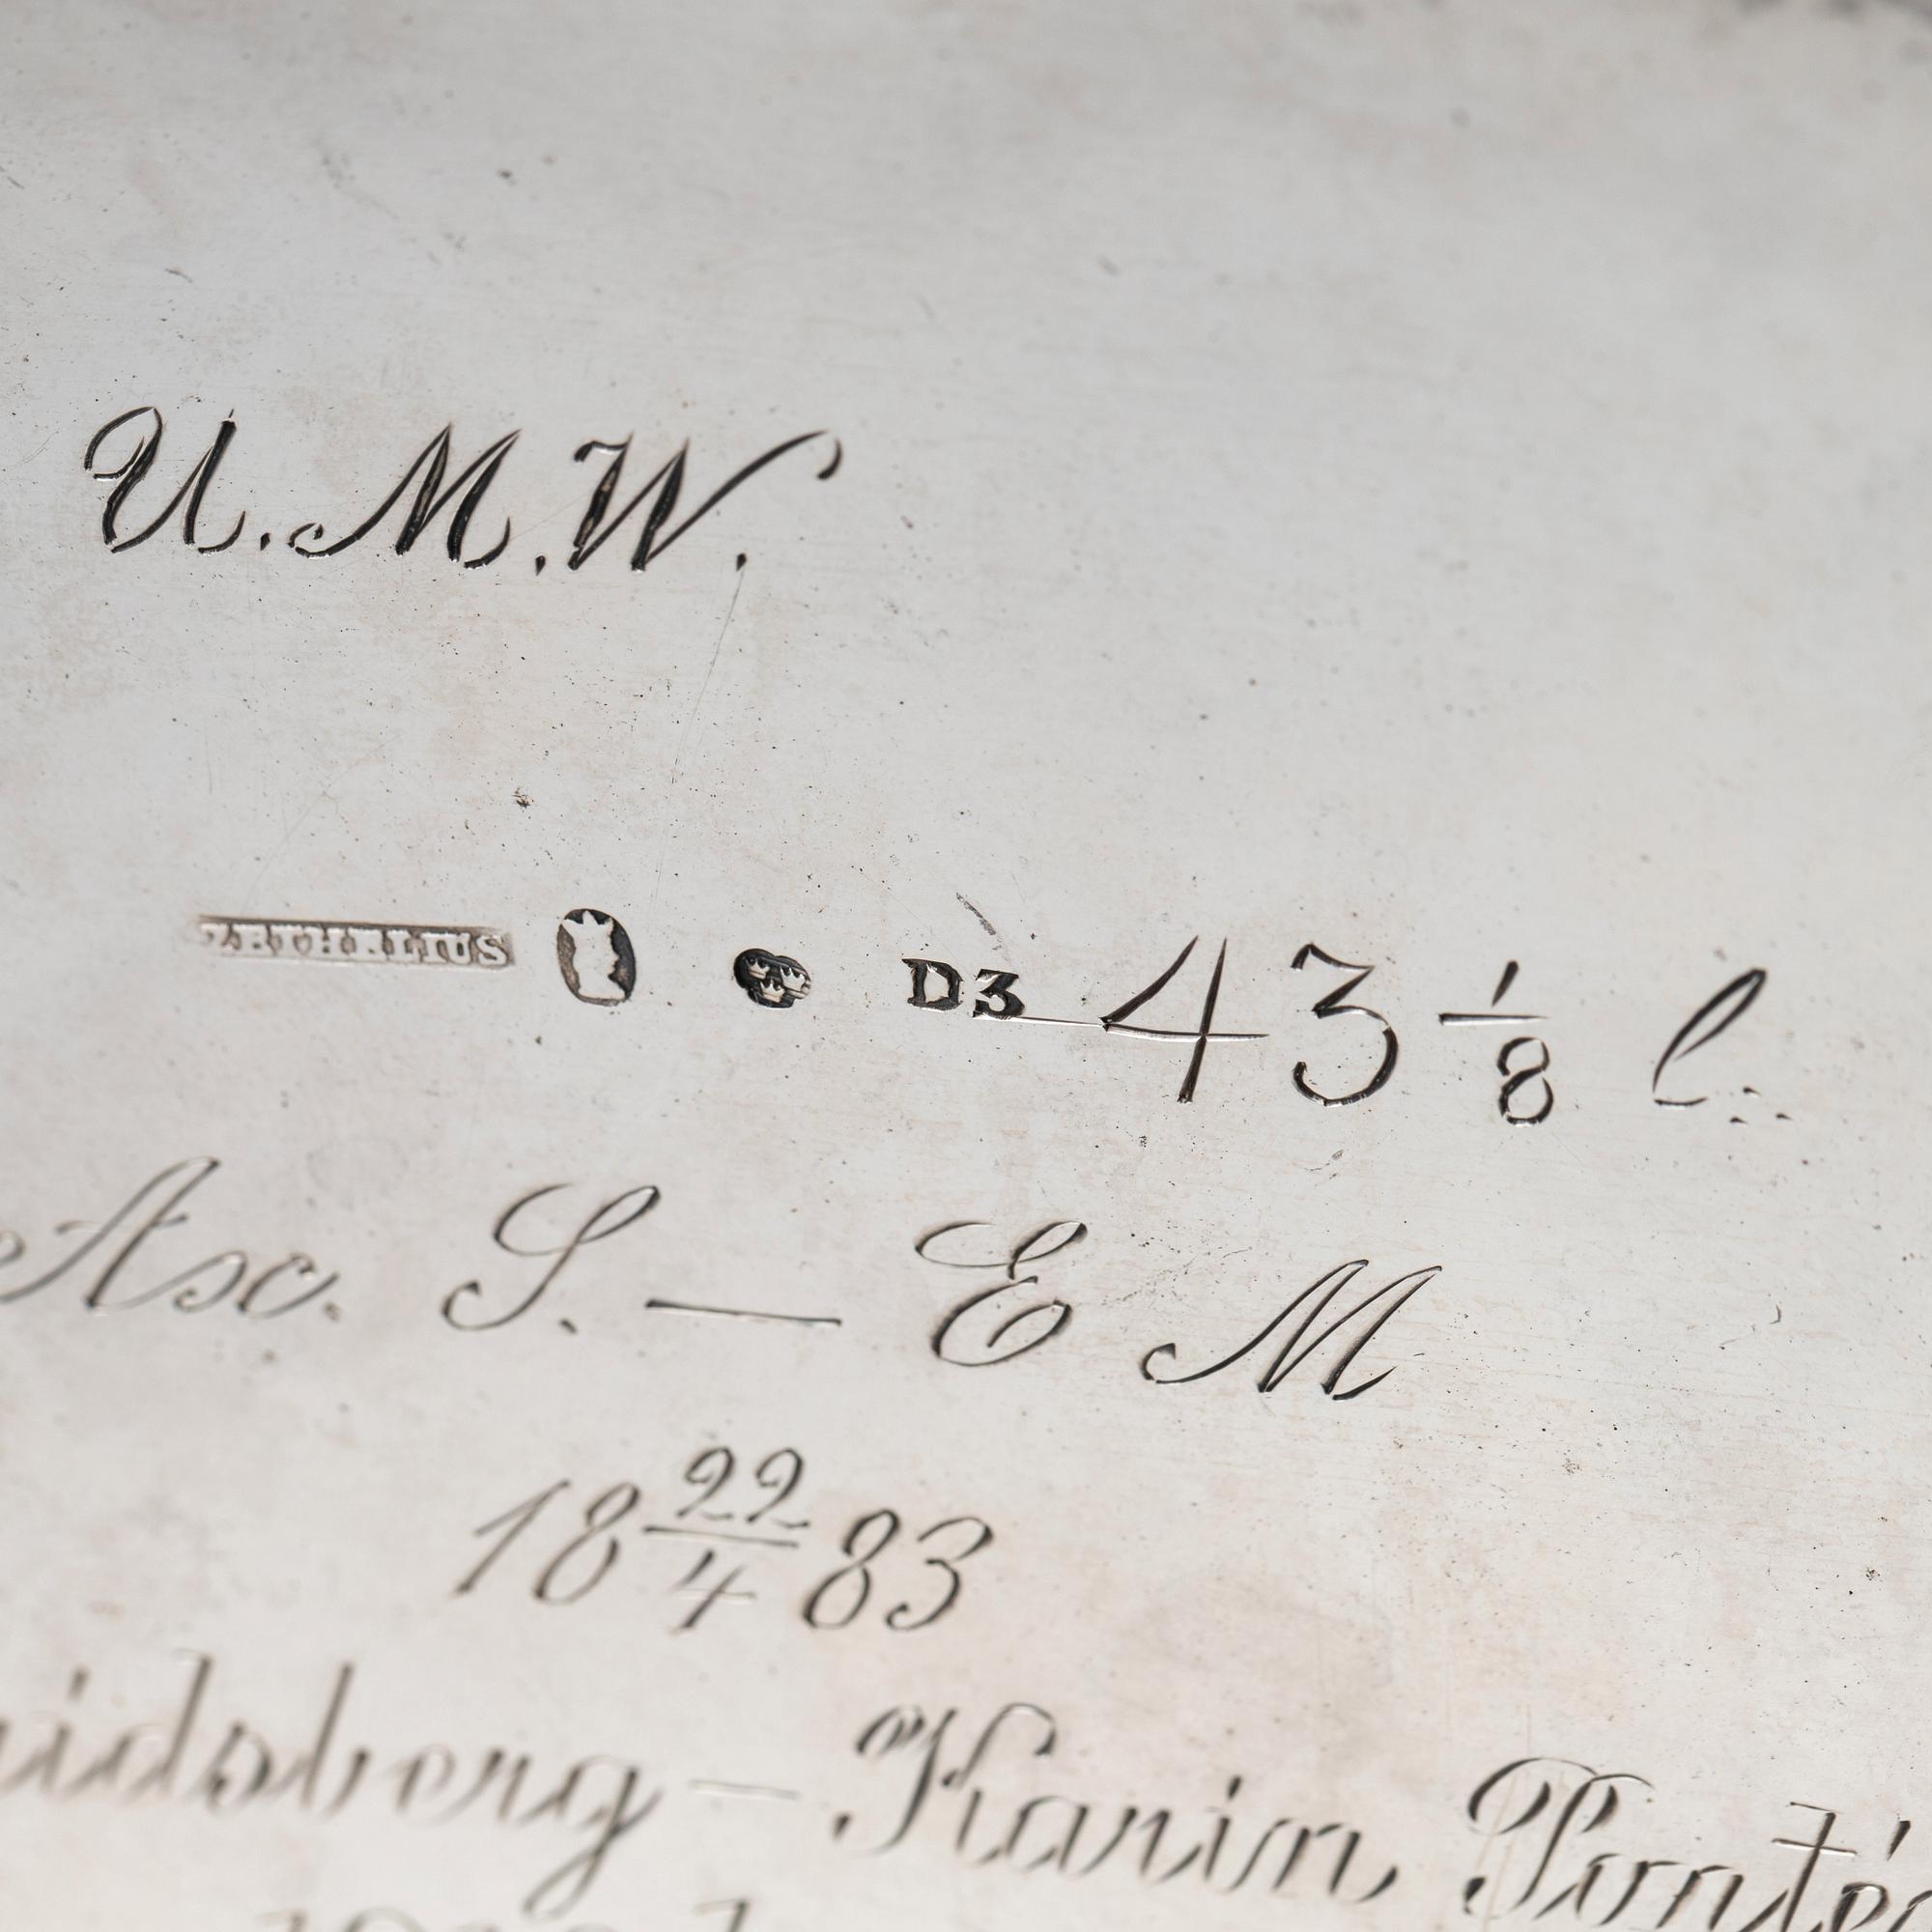 U.M.W.
ZETHELIUS D3 43 1/8 l.
Asc. S. — E M
18 22/4 83
idsberg – Karin Ponté